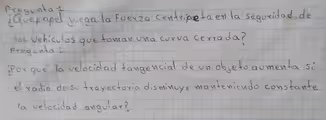 Pregunta 1
¿Que papel juega la Fuerza Centripeta en la seguridad de
los vehiculos que toman una curva cerrada?
Pregunta:
¿Por qué la velocidad tangencial de un objeto aumenta si
el radio de su trayectoria disminuye manteniendo constante
la velocidad angular?